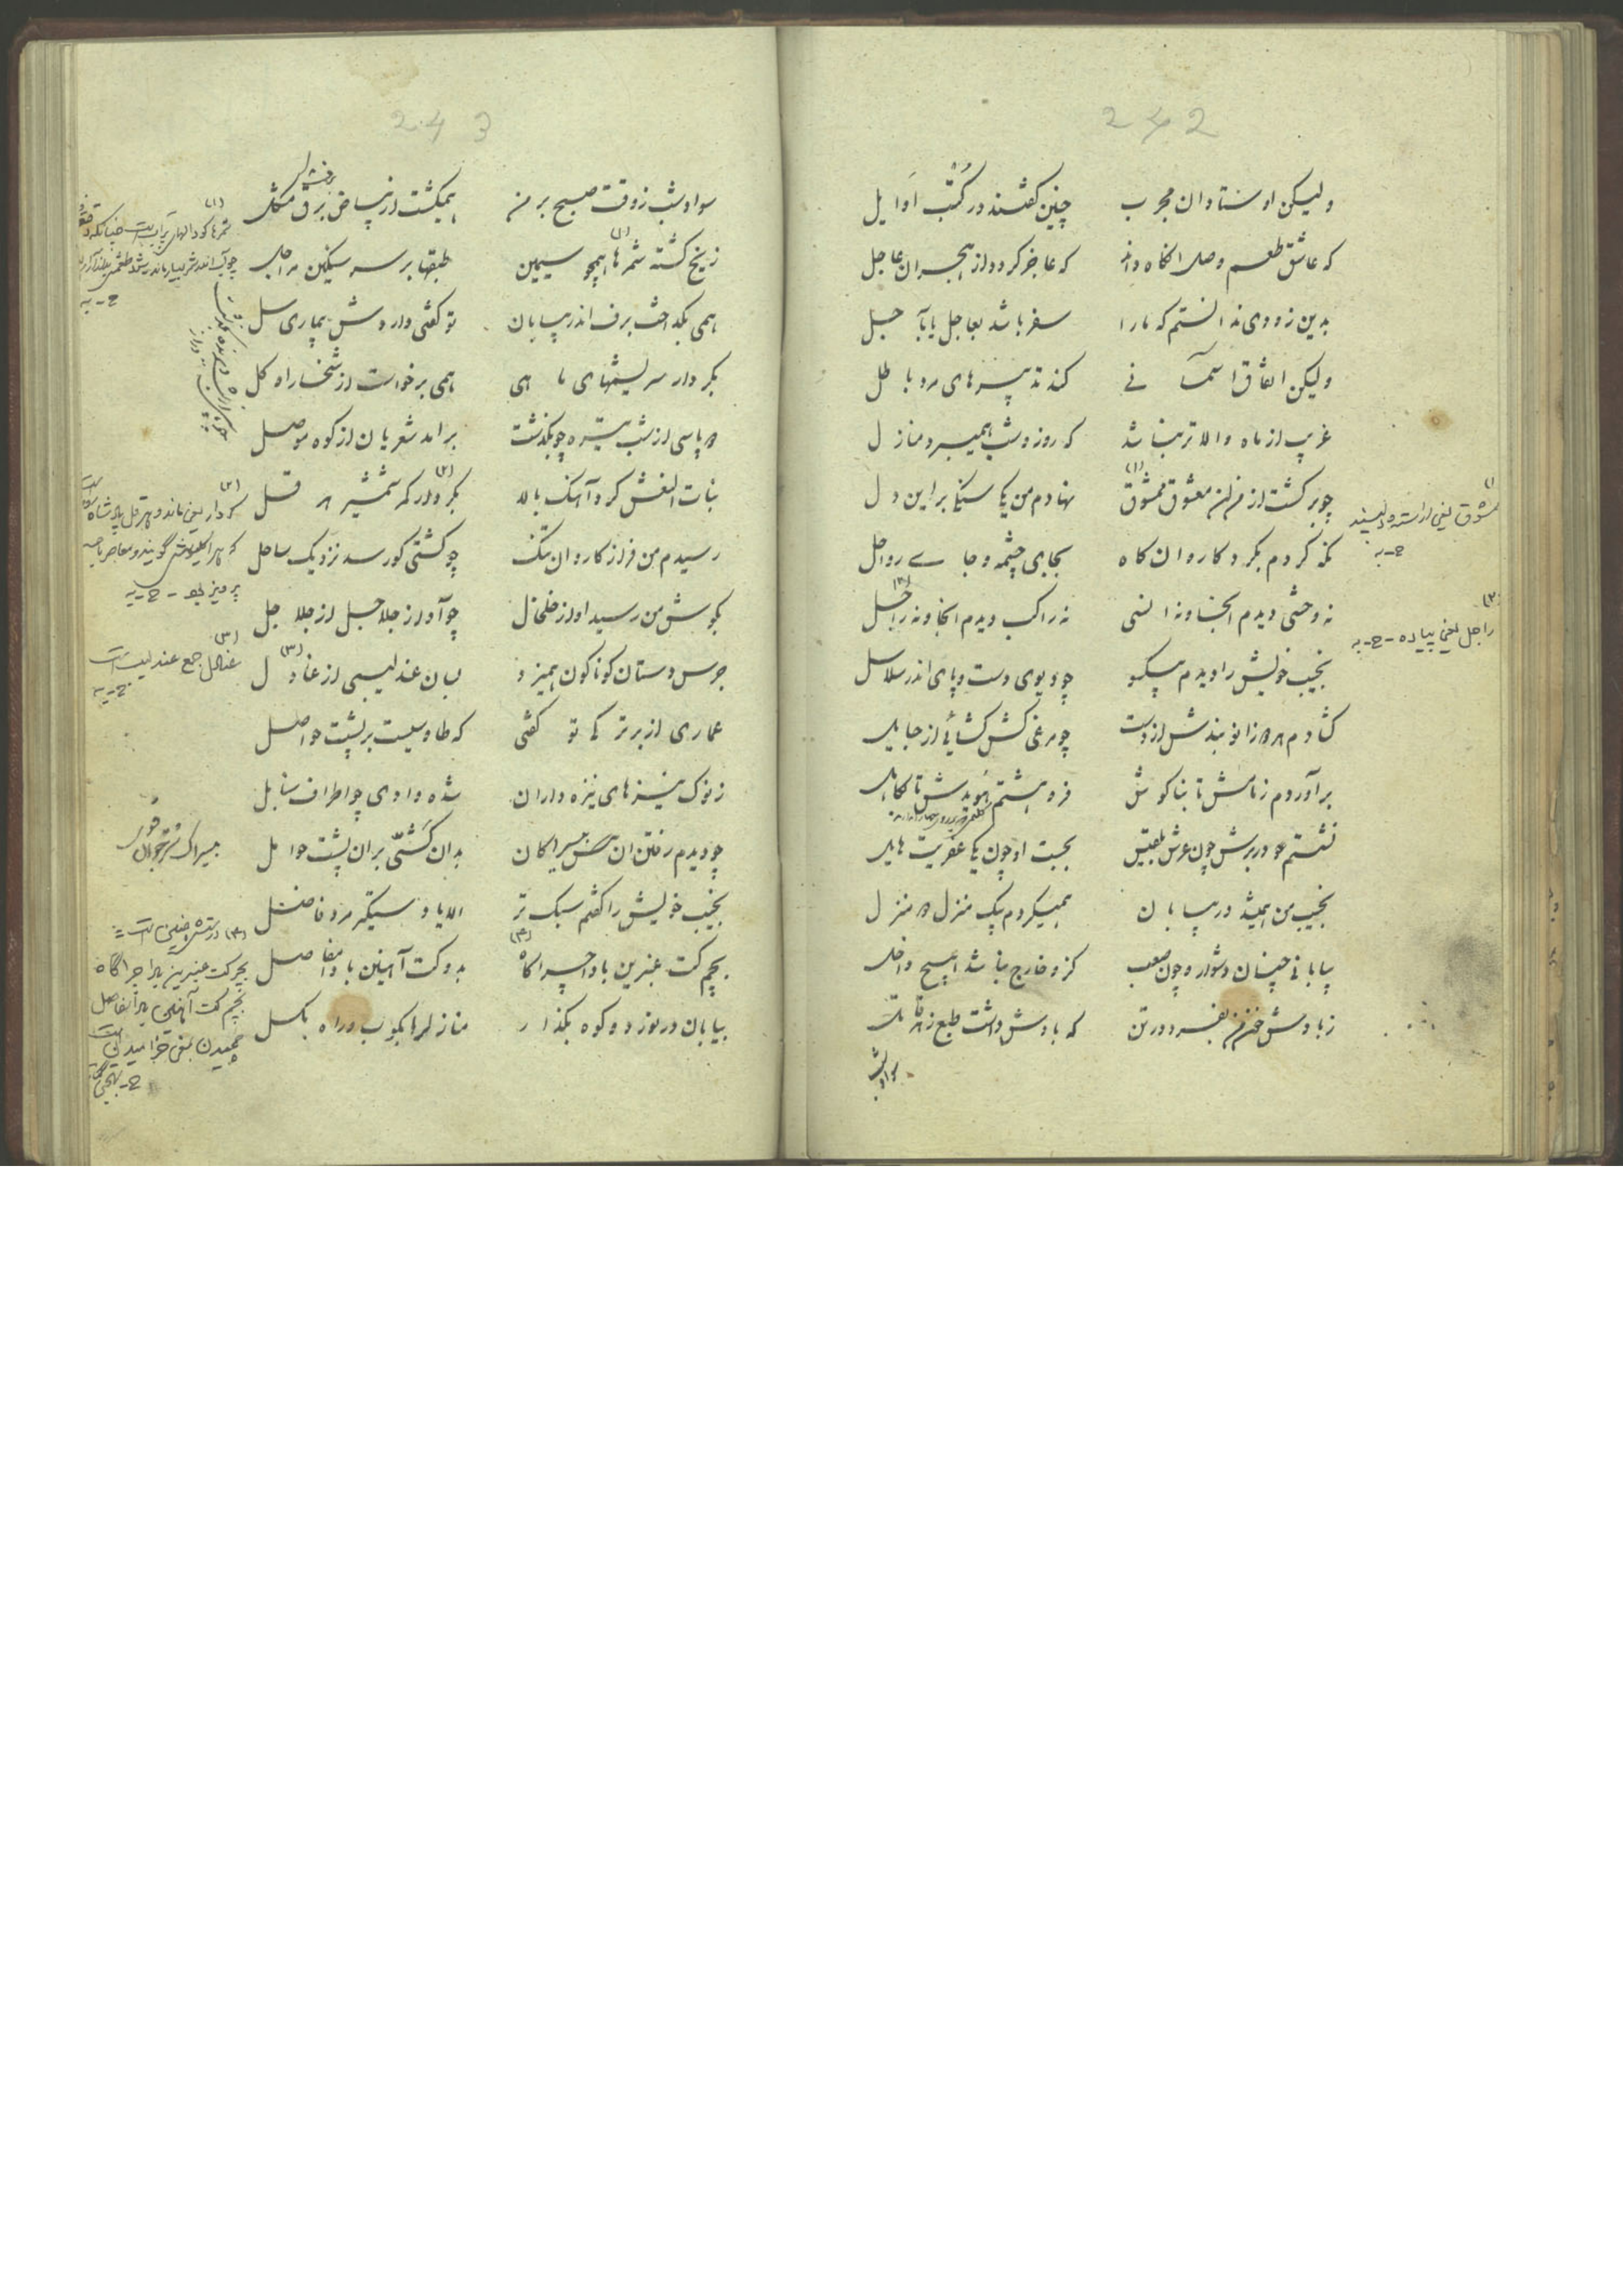 242
ولیکن اوستادان مجرب چنین گفتند در کتب اوایل
که عاشق طعم وصل انگاه داند که عاجز گردد از هجران عاجل
بدین زودی ندانستم که ما را سفر باشد بعاجل یا بآجل
ولیکن اتفاق آسمانی کند تدبیرهای مرد باطل
غریب از ماه والاتر نباشد که روز و شب همیبرد منازل
چو برگشت از من ان معشوق ممشوق (۱) نهادم من یکی سنگی براین دل
نگه کردم بگرد کاروان گاه بجای چشمه و جای رواحل
نه وحشی دیدم انجا و نه انسی نه راکب دیدم انجا و نه راجل (۲)
نجیب خویش را دیدم بیکسو چو دیوی دست و پای اندر سلاسل
گشادم هر دو زانو بندش از دست چو مرغی کش گشائی از حبایل
برآوردم زمامش تا بناگوش فروهشتم هویدش تا بکاهل
نشستم بر برش چون عرش بلقیس بجست او چون یکی عفریت هایل
نجیب من همیشد در بیابان همیکردم یک منزل دو منزل
بیابانی چنان دشوار و چون صعب کزو خارج نباشد هیچ داخل
زبادش خون همی بفسرد در تن که بادش داشت طبع زهر قاتل
سواد شب
(۱)
ممشوق یعنی آراسته و پسند
ح-به
(۲)
راجل یعنی پیاده - ح-به
243
سواد شب ز وقت صبح بر من همیگشت از بیاض برف مشکل
ز یخ گشته شمرها (۱) همچو سیمین طبقها بر سر سیمین مراحل
همی بگداخت برف اندر بیابان تو گفتی داردش بیماری سل
بکردار سریشمهای ماهی همی برخواست از شخسار او گل
دو پاسی از شب تیره چو بگذشت برامد شعریان از کوه موصل
بنات النعش کرد آهنگ بالا بکردار کمر شمشیر هرقل (۲)
رسیدم من فراز کاروان تنگ چو کشتی کو رسد نزدیک ساحل
بگوش من رسید آواز خلخال چو آواز جلاجل از جلاجل
جرس دستان گوناگون همیزد بسان عندلیبی از عنادل (۳)
عماری از بر ترکی تو گفتی که طاوسیست بر پشت حواصل
ز نوک نیزهای نیزه داران شده وادی چو اطراف سنابل
چو دیدم رفتن ان بیسراکان بدان کشی بران پشت حوامل
نجیب خویش را گفتم سبک تر الا یا دستگیر مرد فاضل
بچم کت عنبرین بادا چراگاه (۴) بدو کت آهنین بادا مفاصل
بیابان درنورد و کوه بگذار منازلها بکوب و راه بگسل
(۲)
کردار یعنی مانند و هرقل پادشاه
پرویز بود - ح-به
(۳)
عنادل جمع عندلیب است
ح-به
بیسراک شتر جوان
(۴)
بچم کت آهنین
چمیدن بمعنی خرامیدن است